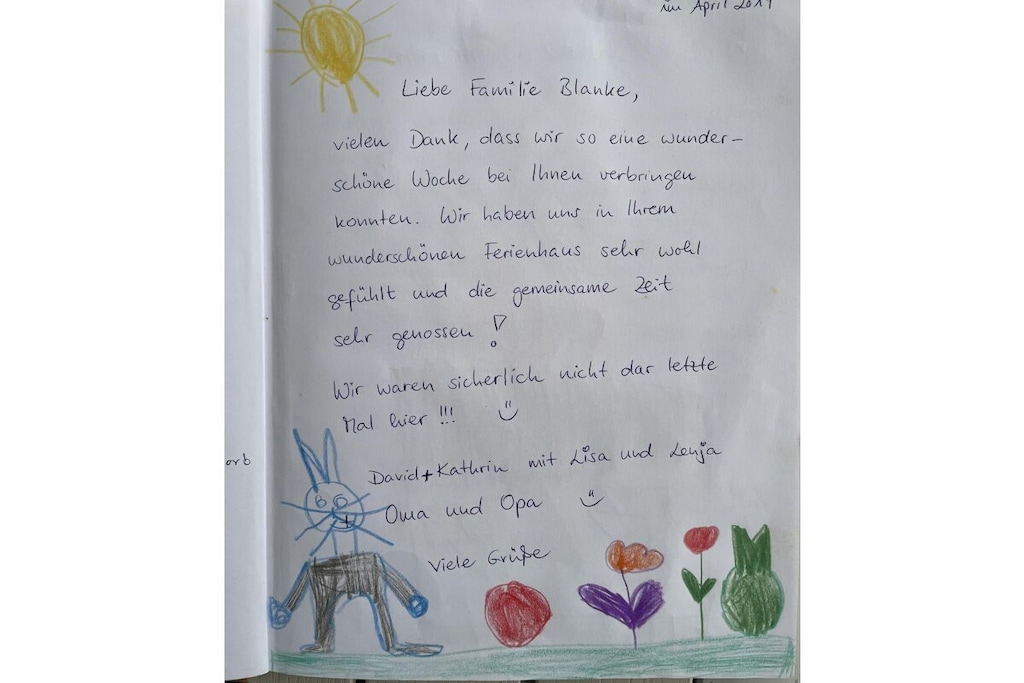 im April 2019
Liebe Familie Blanke,
vielen Dank, dass wir so eine wunder-
schöne Woche bei Ihnen verbringen
konnten. Wir haben uns in Ihrem
wunderschönen Ferienhaus sehr wohl
gefühlt und die gemeinsame Zeit
sehr genossen!
Wir waren sicherlich nicht dar letzte
Mal hier!!!
orb
David+Kathrin mit Lisa und Lenja
Oma und Opa
Viele Grüße